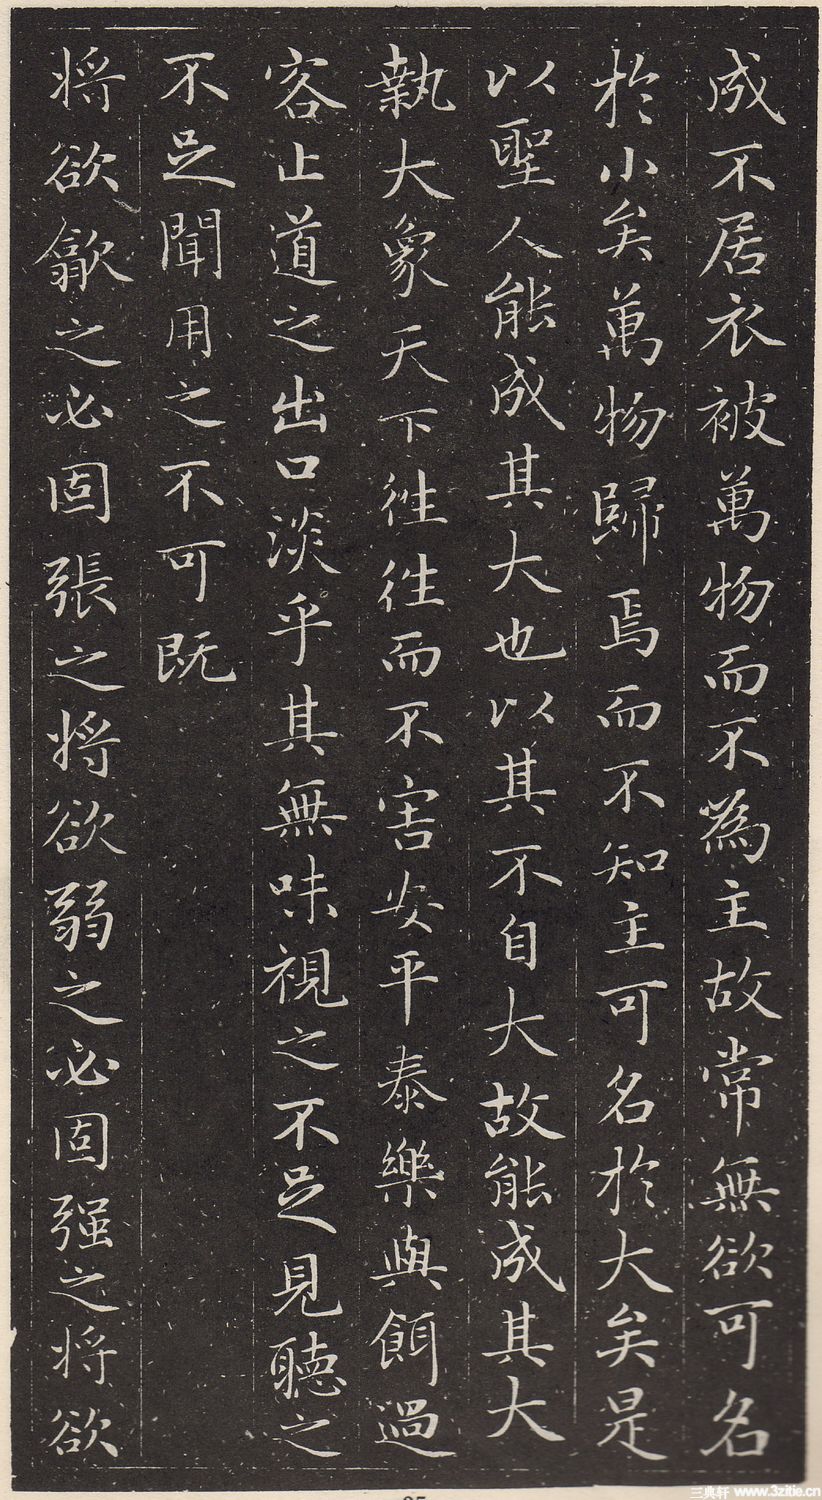 成不居衣被萬物而不為主故常無欲可名
於小矣萬物歸焉而不知主可名於大矣是
以聖人能成其大也以其不自大故能成其大
執大象天下往往而不害安平泰樂與餌過
容止道之出口淡乎其無味視之不足見聽之
不足聞用之不可既
將欲歙之必固張之將欲弱之必固强之將欲
三典轩 www.3zitie.cn